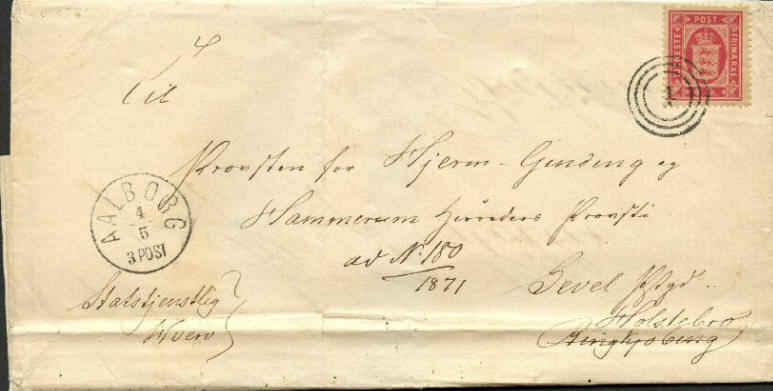 POST
FRIMÆRKE
Til
Provsten for Hjerm-Ginding og
Hammerum Herreders Provsti
AALBORG
4
5
3 POST
ad No. 180
1871
Sevel Pstgd.
Statstjenstlig
Hverv
Holstebro
Ringkjøbing